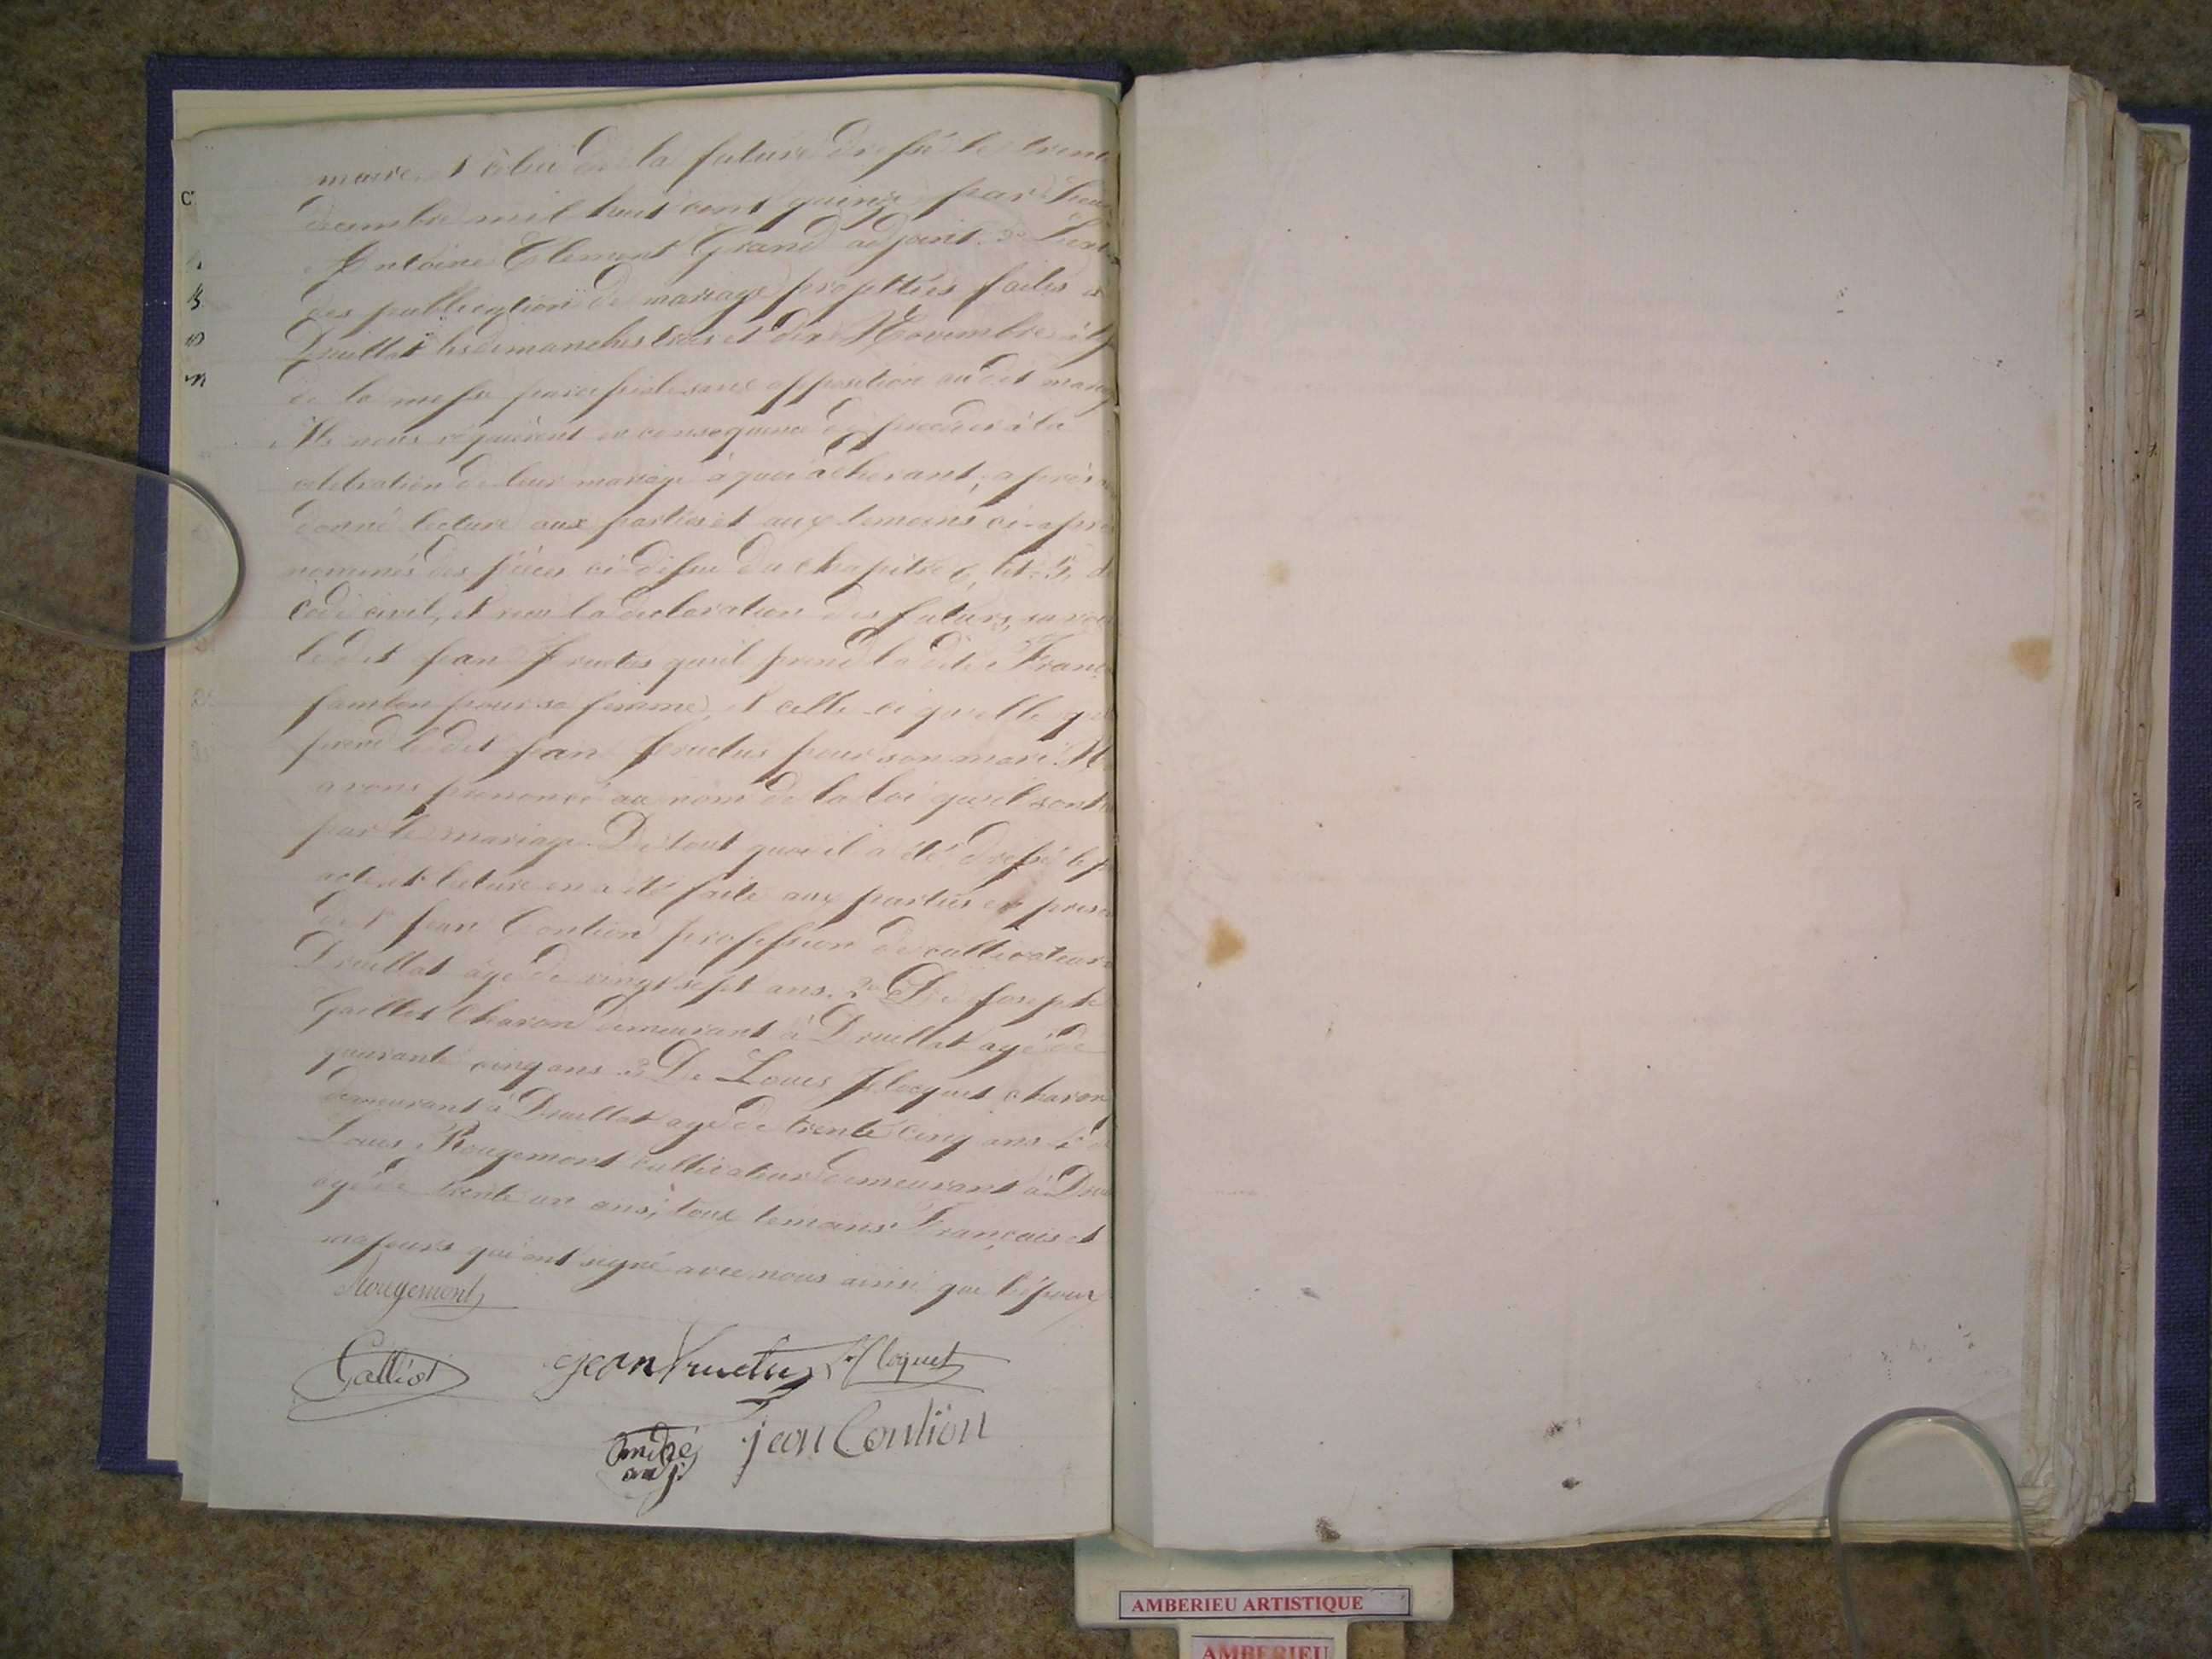 maire, et celui de la future drefsé le trent
decembre mil huit cent quinze par
Antoine Clement Grand adjoint. 3°
des publication de mariage projettées faites à
Druillat les dimanches trois et dix Novembre
de la mefse paroifsiale sans opposition au dit mari
Ils nous réquièrent en consequence de proceder à la
celebration de leur mariage à quoi adherant, après
donné lecture aux parties et aux temoins ci-apre
nommés des pièces ci-defsus du chapitre 6, tit. 5, d
Code civil, et reçu la declaration des futurs,
ledit jean fructus qu'il prend la dite Franç
pour sa femme, et celle-ci qu'elle
prend ledit jean fructus pour son mari. N
avons prononcé au nom de la loi qu'il sont
par le mariage. De tout quoi il a été drefsé le p
acte, et lecture en a été faite aux parties en prese
de 1° jean Contion profefsion de cultivateur
Druillat âgé de vingt sept ans. 2° De joseph
Galliot Charon demeurant à Druillat agé de
quarante cinq ans 3° De Louis floquet charon
demeurant à Druillat agé de trente cinq ans 4° d
Louis Rougemont cultivateur demeurant à Dru
agé de trente un ans; tous temoins Français et
majeurs qui ont signé avec nous ainsi que l'époux
Rougemont
Galliot jean fructus floquet
jean Contion
André
adj.
AMBERIEU ARTISTIQUE
AMBERIEU